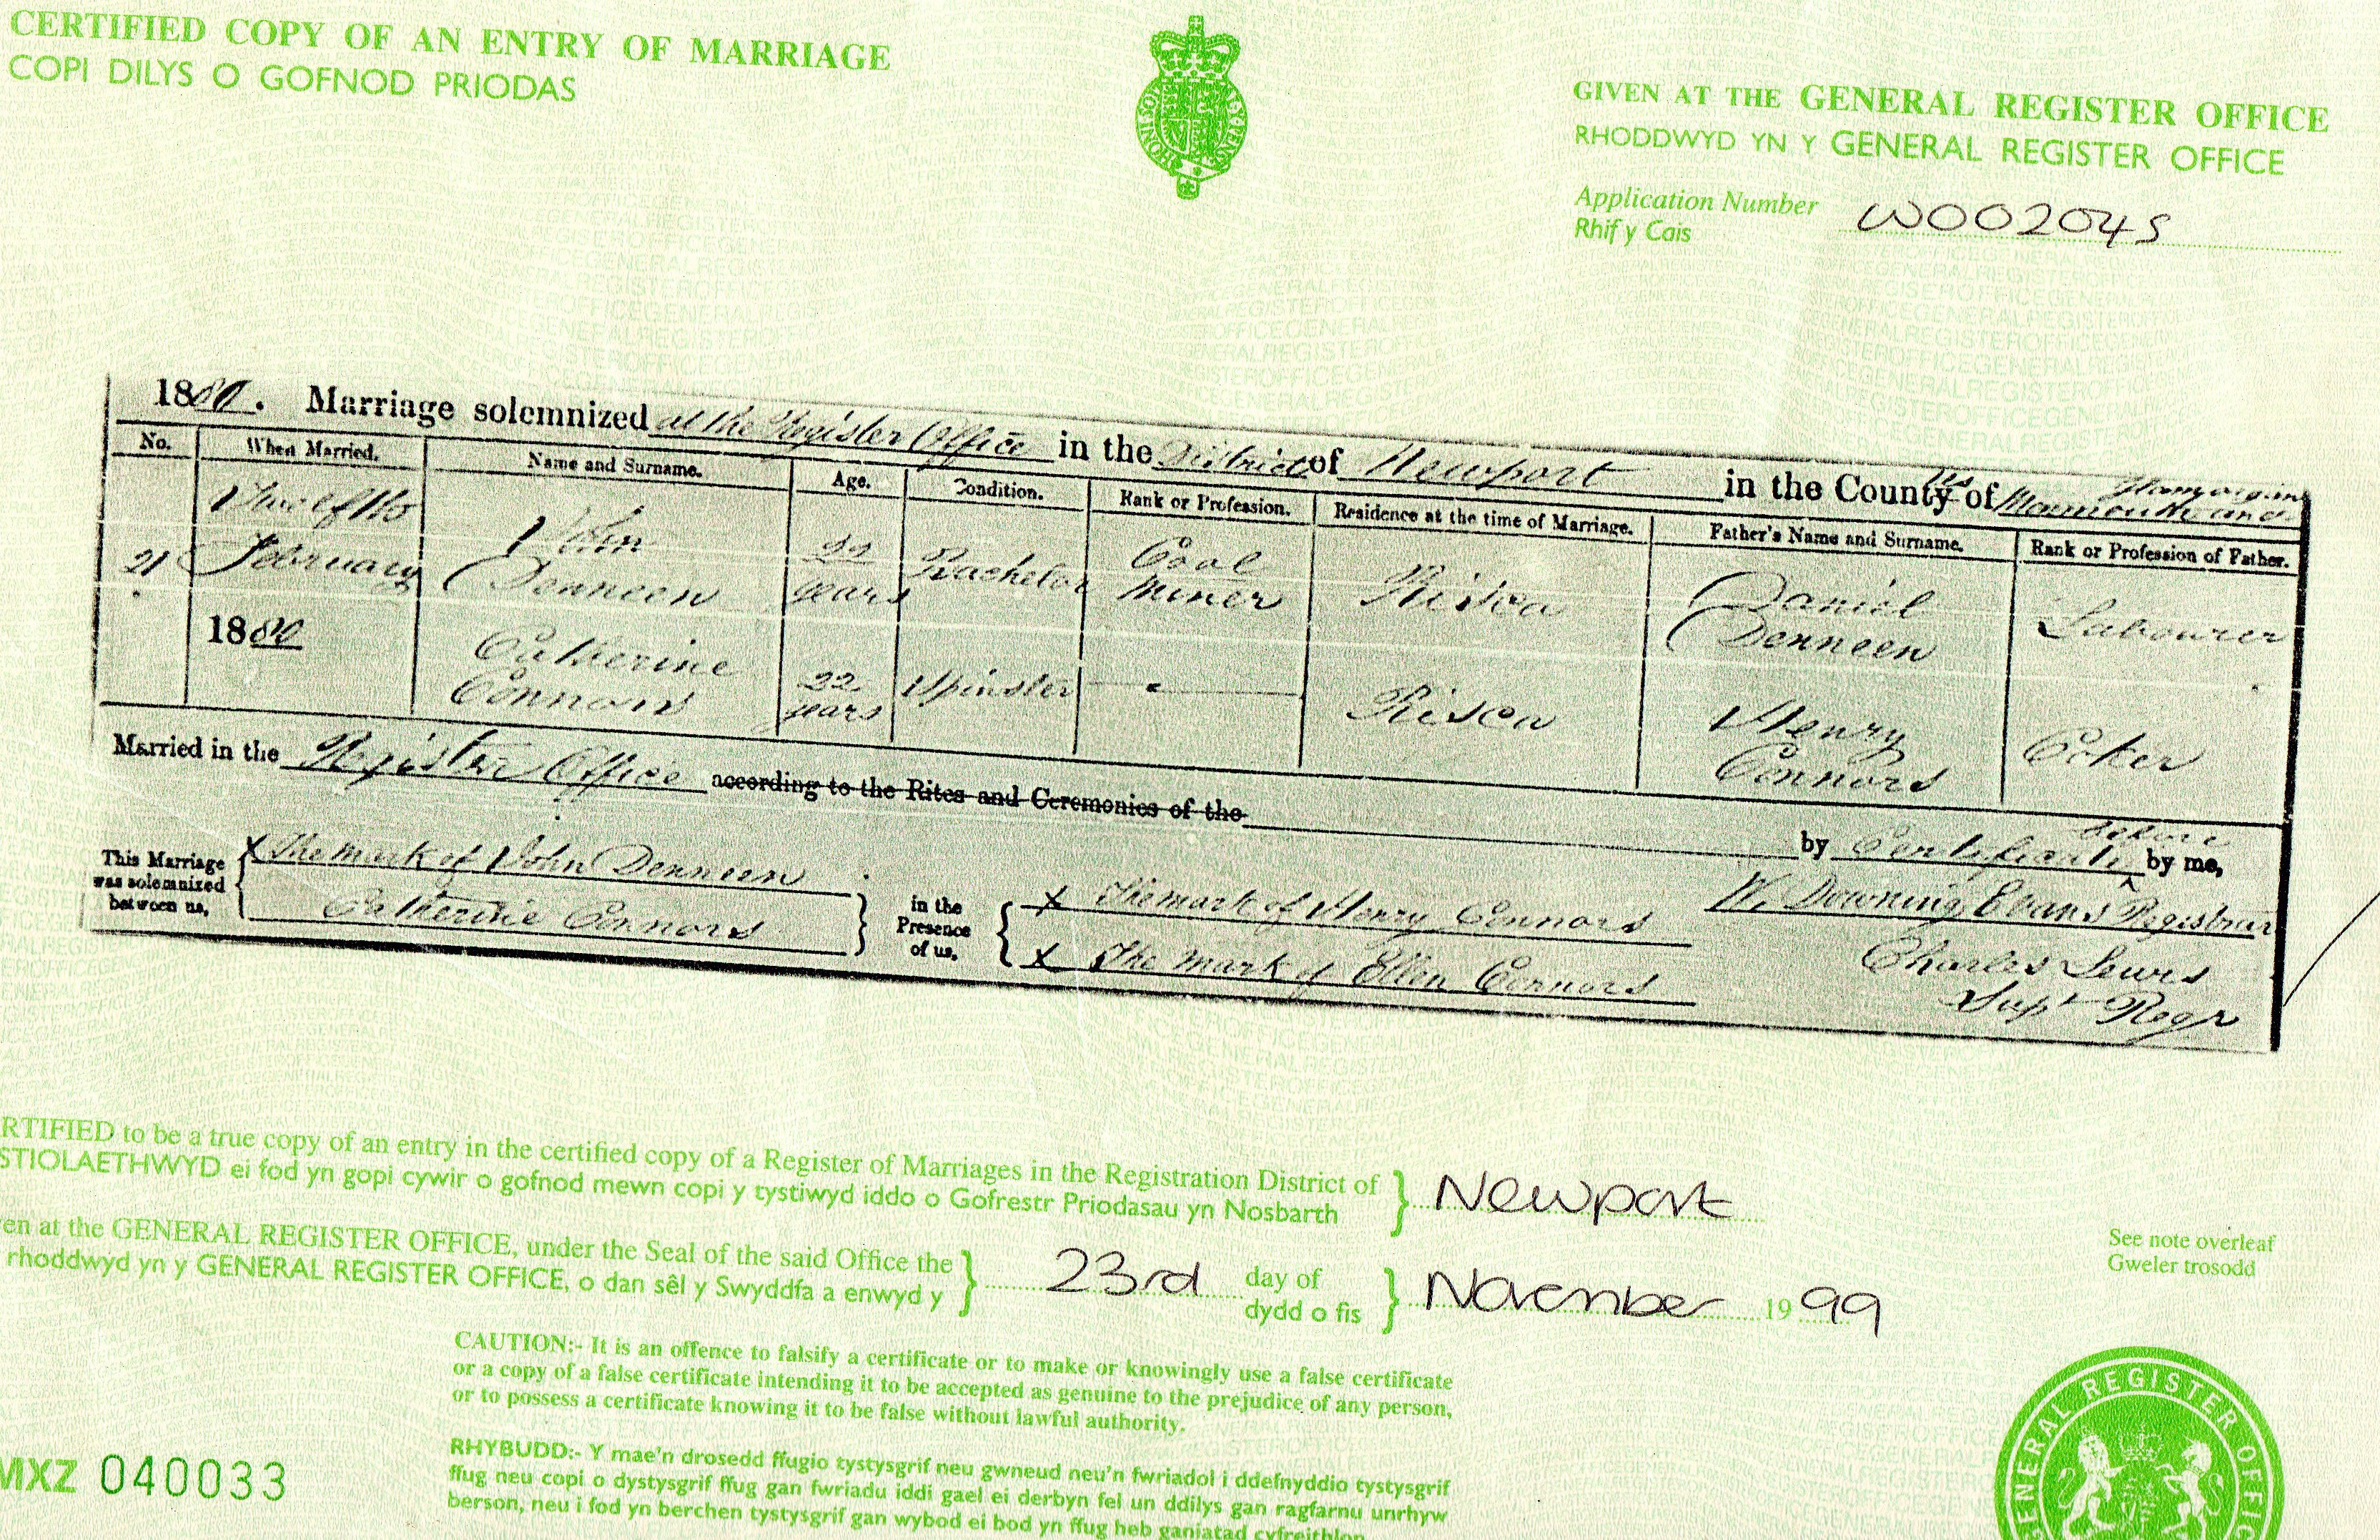 CERTIFIED COPY OF AN ENTRY OF MARRIAGE
COPI DILYS O GOFNOD PRIODAS
GIVEN AT THE GENERAL REGISTER OFFICE
RHODDWYD YN Y GENERAL REGISTER OFFICE
Application Number
Rhif y Cais
W002045
1880. Marriage solemnized at the Register Office in the District of Newport in the Counties of Monmouth and Glamorgan
No. When Married. Name and Surname. Age. Condition. Rank or Profession. Residence at the time of Marriage. Father's Name and Surname. Rank or Profession of Father.
21 Twelfth February 1880
John Denneen 22 years Bachelor Coal Miner Risca Daniel Denneen Labourer
Catherine Connors 22 years Spinster — Risca Henry Connors Coker
Married in the Register Office according to the Rites and Ceremonies of the by Certificate before by me,
This Marriage was solemnized between us,
X The mark of John Denneen
Catherine Connors
in the Presence of us,
X The mark of Henry Connors
X The mark of Ellen Connors
W. Downing Evans Registrar
Charles Lewis
Supt Regr
RTIFIED to be a true copy of an entry in the certified copy of a Register of Marriages in the Registration District of
STIOLAETHWYD ei fod yn gopi cywir o gofnod mewn copi y tystiwyd iddo o Gofrestr Priodasau yn Nosbarth
Newport
en at the GENERAL REGISTER OFFICE, under the Seal of the said Office the
rhoddwyd yn y GENERAL REGISTER OFFICE, o dan sêl y Swyddfa a enwyd y
23rd day of
dydd o fis
November 1999
See note overleaf
Gweler trosodd
CAUTION:- It is an offence to falsify a certificate or to make or knowingly use a false certificate
or a copy of a false certificate intending it to be accepted as genuine to the prejudice of any person,
or to possess a certificate knowing it to be false without lawful authority.
RHYBUDD:- Y mae'n drosedd ffugio tystysgrif neu gwneud neu'n fwriadol i ddefnyddio tystysgrif
ffug neu copi o dystysgrif ffug gan fwriadu iddi gael ei derbyn fel un ddilys gan ragfarnu unrhyw
berson, neu i fod yn berchen tystysgrif gan wybod ei bod yn ffug heb ganiatad cyfreithlon
MXZ 040033
GENERAL REGISTER OFFICE